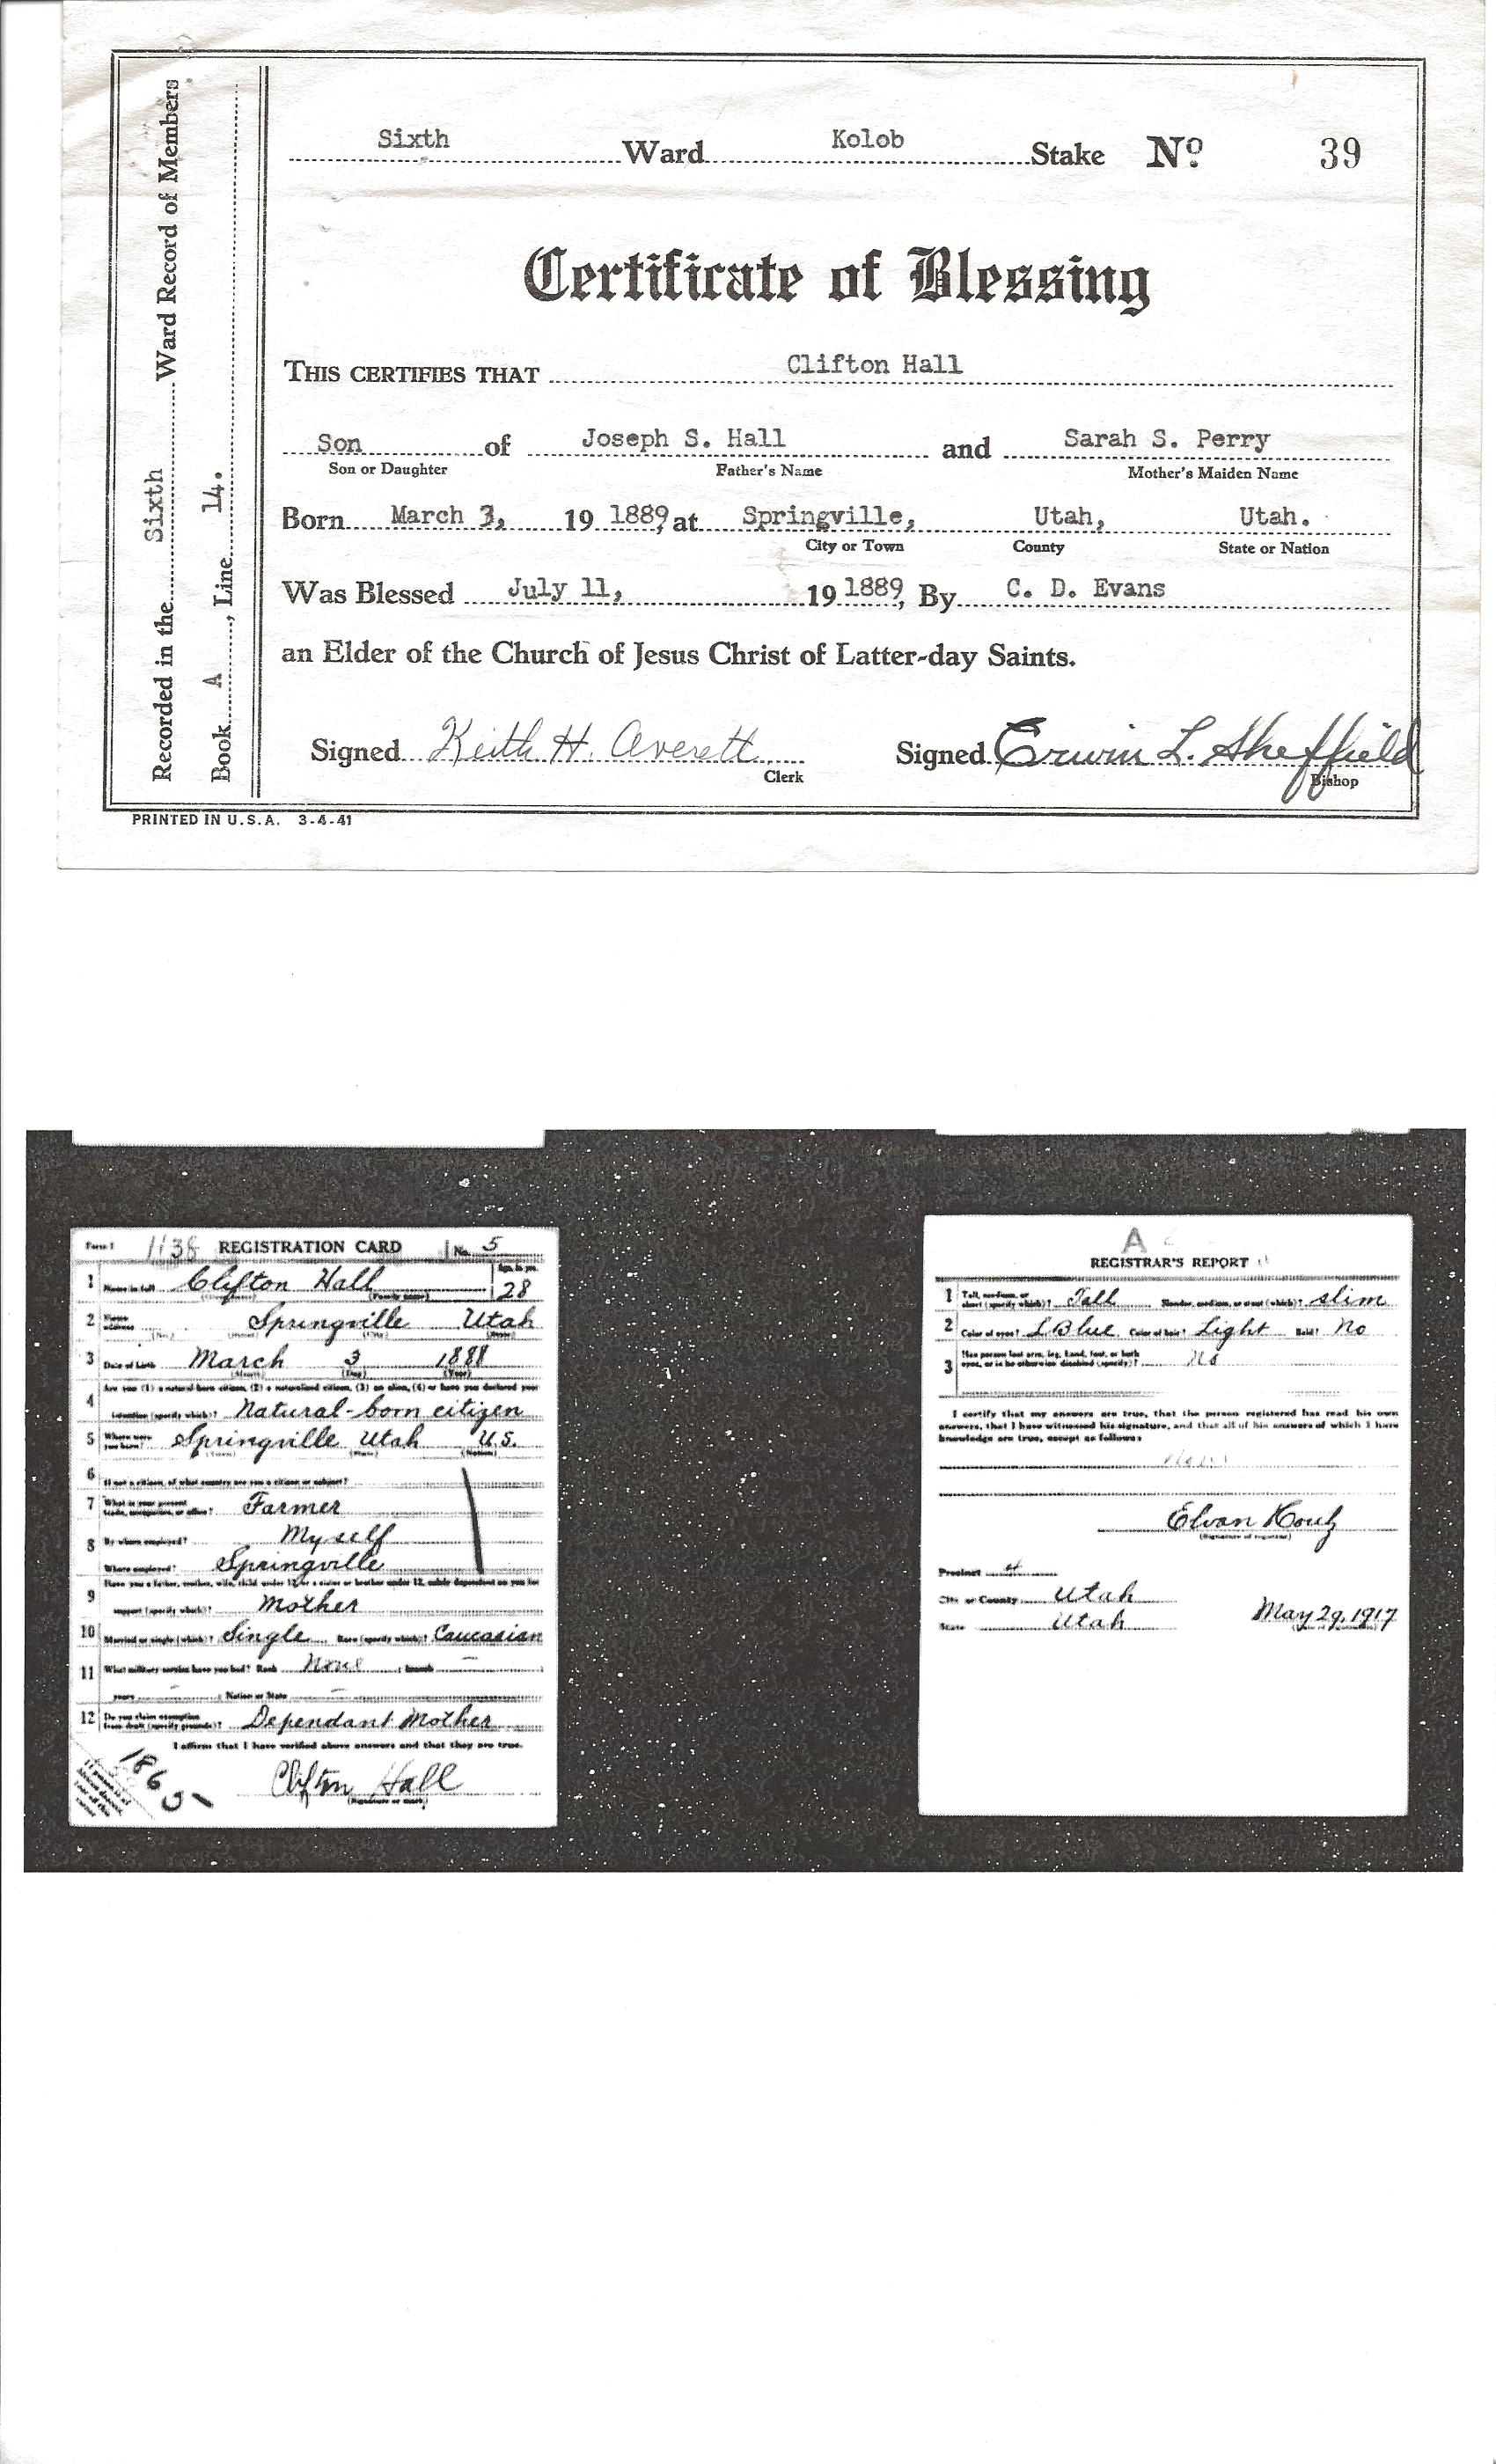 Sixth Ward Kolob Stake Nº 39
Certificate of Blessing
THIS CERTIFIES THAT Clifton Hall
Son of Joseph S. Hall and Sarah S. Perry
Son or Daughter Father's Name Mother's Maiden Name
Born March 3, 19 1889, at Springville, Utah, Utah.
City or Town County State or Nation
Was Blessed July 11, 19 1889, By C. D. Evans
an Elder of the Church of Jesus Christ of Latter-day Saints.
Signed Keith H. Averett Signed Erwin L. Sheffield
Clerk Bishop
Recorded in the Sixth Ward Record of Members
Book A, Line 14.
PRINTED IN U.S.A. 3-4-41
Form 1 1138 REGISTRATION CARD No. 5
1 Name in full Clifton Hall 28
(Family name)
2 Home address Springville Utah
3 Date of birth March 3 1888
(Month) (Day) (Year)
Are you (1) a natural-born citizen, (2) a naturalized citizen, (3) an alien, (4) or have you declared your
4 intention (specify which)? Natural-born citizen
5 Where were you born? Springville Utah U.S.
(Town) (State) (Nation)
6 If not a citizen, of what country are you a citizen or subject?
7 What is your present trade, occupation, or office? Farmer
8 By whom employed? Myself
Where employed? Springville
Have you a father, mother, wife, child under 12, or a sister or brother under 12, solely dependent on you for
9 support (specify which)? Mother
10 Married or single (which)? Single Race (specify which)? Caucasian
11 What military service have you had? Rank None ; branch —
years - ; Nation or State —
12 Do you claim exemption from draft (specify grounds)? Dependant Mother
I affirm that I have verified above answers and that they are true.
Clifton Hall
(Signature or mark)
A
REGISTRAR'S REPORT
1 Tall, medium, or short (specify which)? Tall Slender, medium, or stout (which)? slim
2 Color of eyes? L Blue Color of hair? Light Bald? No
3 Has person lost arm, leg, hand, foot, or both eyes, or is he otherwise disabled (specify)? No
I certify that my answers are true, that the person registered has read his own
answers, that I have witnessed his signature, and that all of his answers of which I have
knowledge are true, except as follows:
Elvan
(Signature of registrar)
Precinct 4
City or County Utah
State Utah May 29, 1917